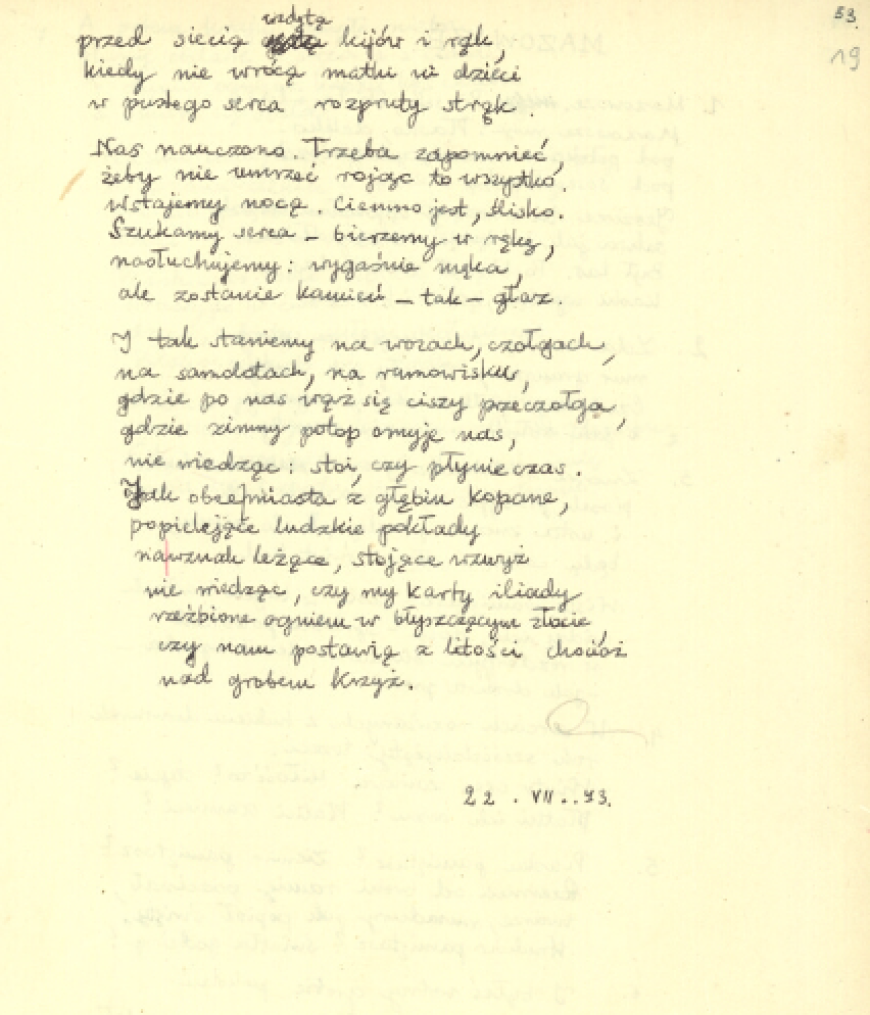 53.
19
wzdętą
przed siecią kijów i rąk,
kiedy nie wrócą matki ni dzieci
w pustego serca rozpruty strąk.
Nas nauczono. Trzeba zapomnieć,
żeby nie umrzeć rojąc to wszystko.
Wstajemy nocą. Ciemno jest, ślisko.
Szukamy serca – bierzemy w rękę,
nasłuchujemy: wygaśnie męka,
ale zostanie kamień – tak – głaz.
I tak staniemy na wozach, czołgach,
na samolotach, na rumowisku,
gdzie po nas wąż się ciszy przeczołga,
gdzie zimny potop omyje nas,
nie wiedząc: stoi, czy płynie czas.
Jak obce miasta z głębin kopane,
popielejące ludzkie pokłady
nawznak leżące, stojące wzwyż
nie wiedząc, czy my karty iliady
rzeźbione ogniem w błyszczącym złocie,
czy nam postawią z litości chociaż
nad grobem krzyż.
22. VII..43.